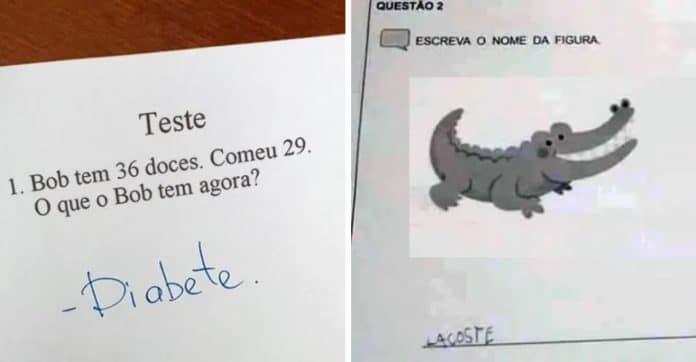 Teste
1. Bob tem 36 doces. Comeu 29.
O que o Bob tem agora?
- Diabete.
QUESTÃO 2
ESCREVA O NOME DA FIGURA.
LACOSTE